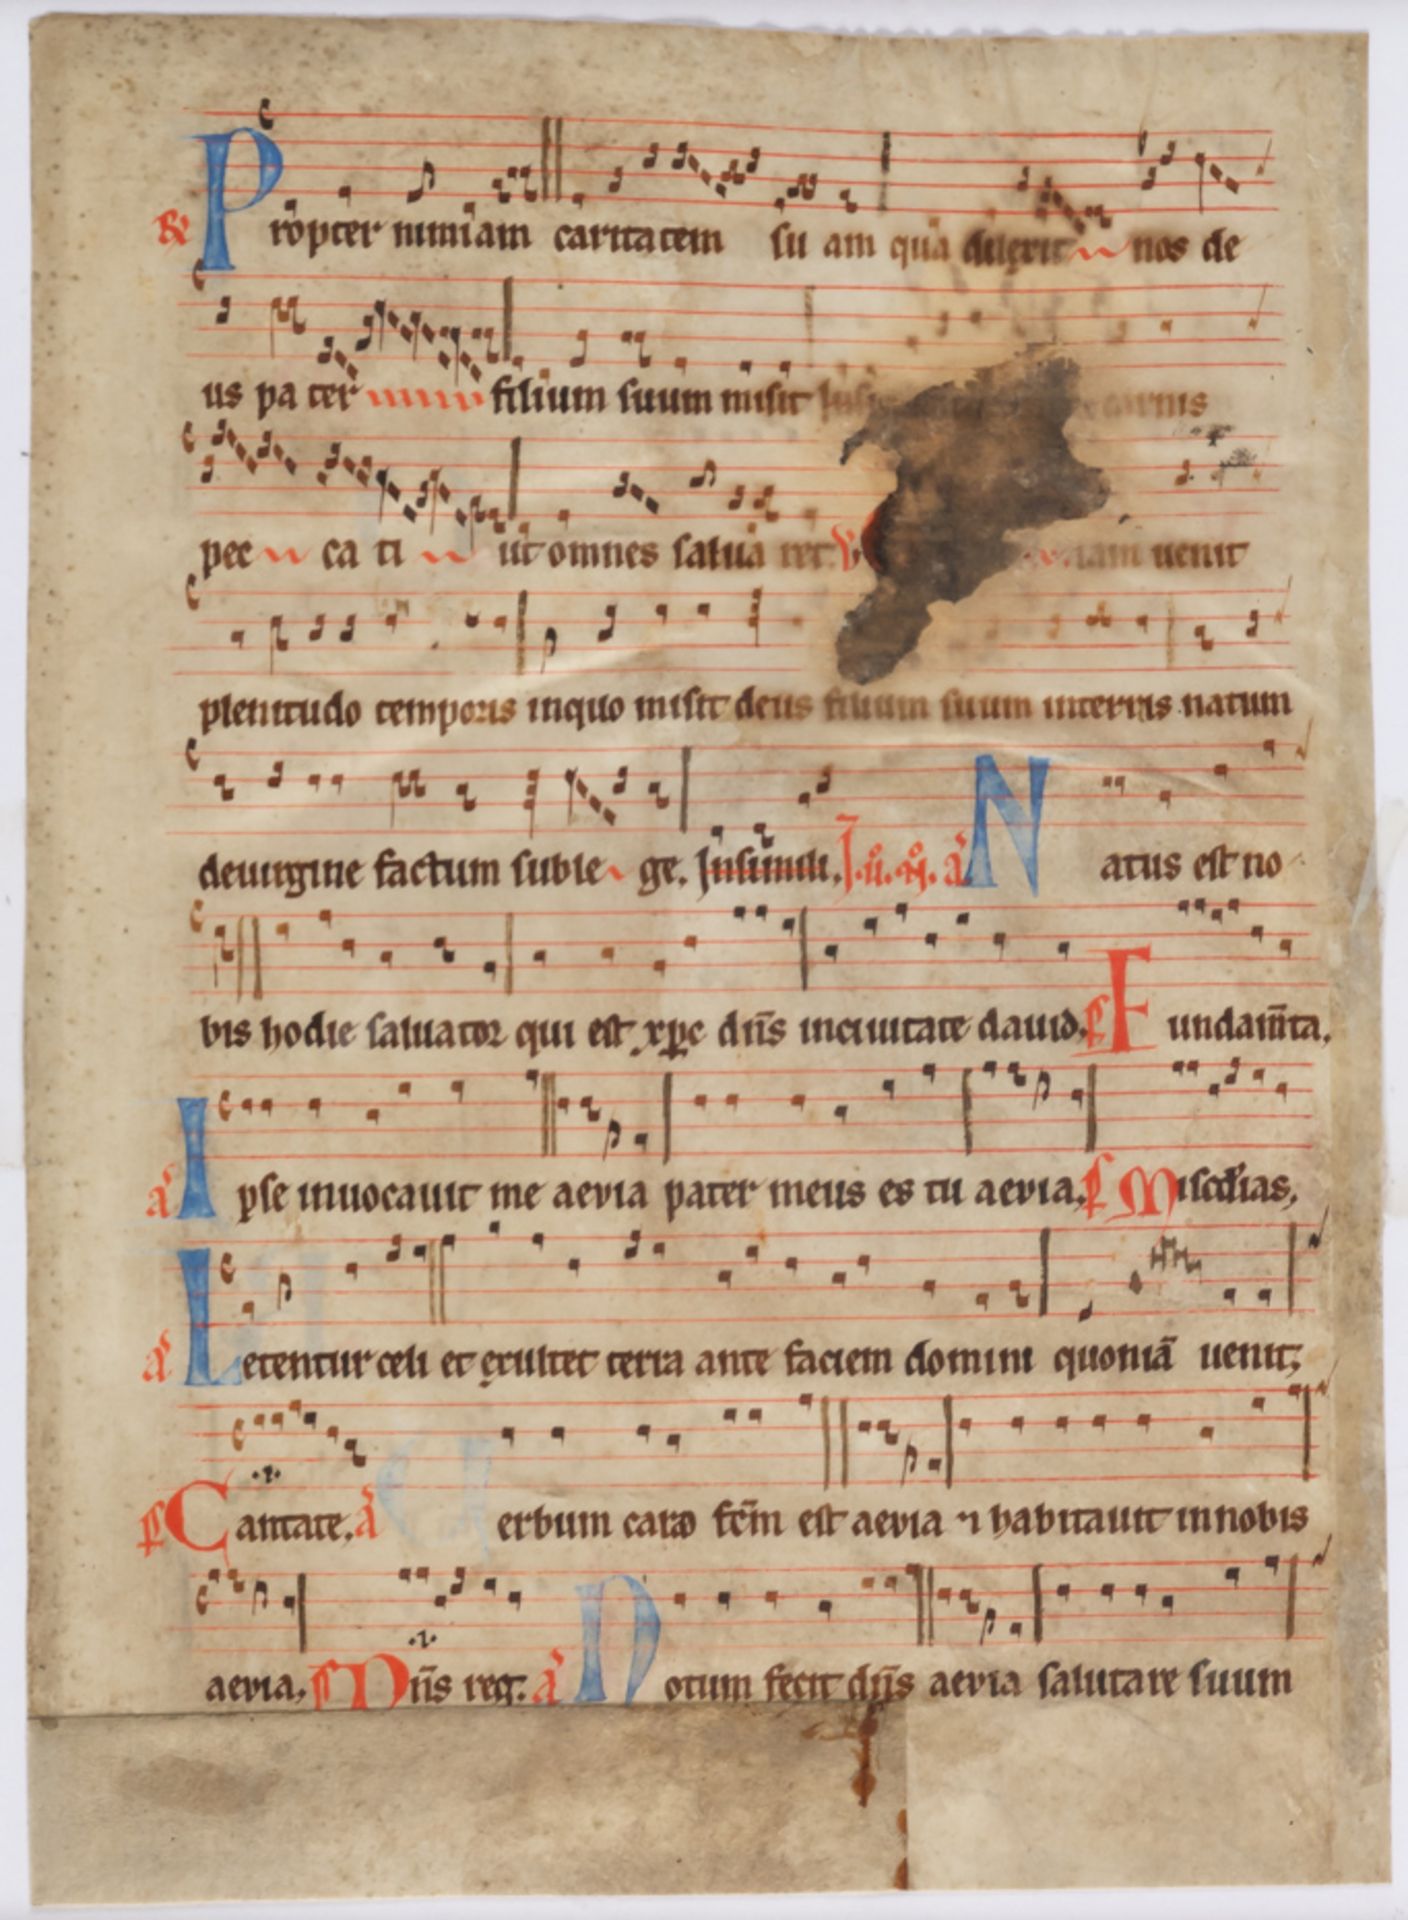 R Propter nimiam caritatem su am qua dilexit nos de
us pa ter filium suum misit carnis
pec ca ti ut omnes salua ret. V iam uenit
plenitudo temporis inquo misit deus filium suum interris natum
deuirgine factum suble ge. Insimili. I. ii. N. a Natus est no
bis hodie saluator qui est xpc dns inciuitate dauid, ps Fundamta,
a Ipse inuocauit me aevia pater meus es tu aevia, ps Miscdias,
a Letentur celi et exultet terra ante faciem domini quoniā uenit,
ps Cantate. a erbum caro fcm est aevia ⁊ habitauit innobis
aevia, ps Dns reg. a Notum fecit dns aevia salutare suum